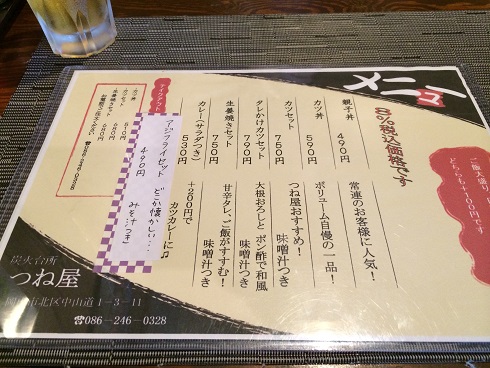 メニュー
8%税込価格です
ご飯大盛り
どちらも+100円です
親子丼 490円 常連のお客様に人気!
カツ丼 590円 ボリューム自慢の一品!
カツセット 750円 つね屋おすすめ! 味噌汁つき
タレかけカツセット 790円 大根おろしとポン酢で和風 味噌汁つき
生姜焼きセット 750円 甘辛タレ、ご飯がすすむ! 味噌汁つき
カレー(サラダつき) 530円 +200円でカツカレーに♫
アジフライセット 490円 どこか懐かしい… みそ汁つき
テイクアウト
カツ丼 510円
カツセット 680円
生姜焼きセット 680円
お電話でのご注文もどうぞ
☎086-246-0328
炭火台所
つね屋
岡山市北区中山道1-3-11
☎086-246-0328